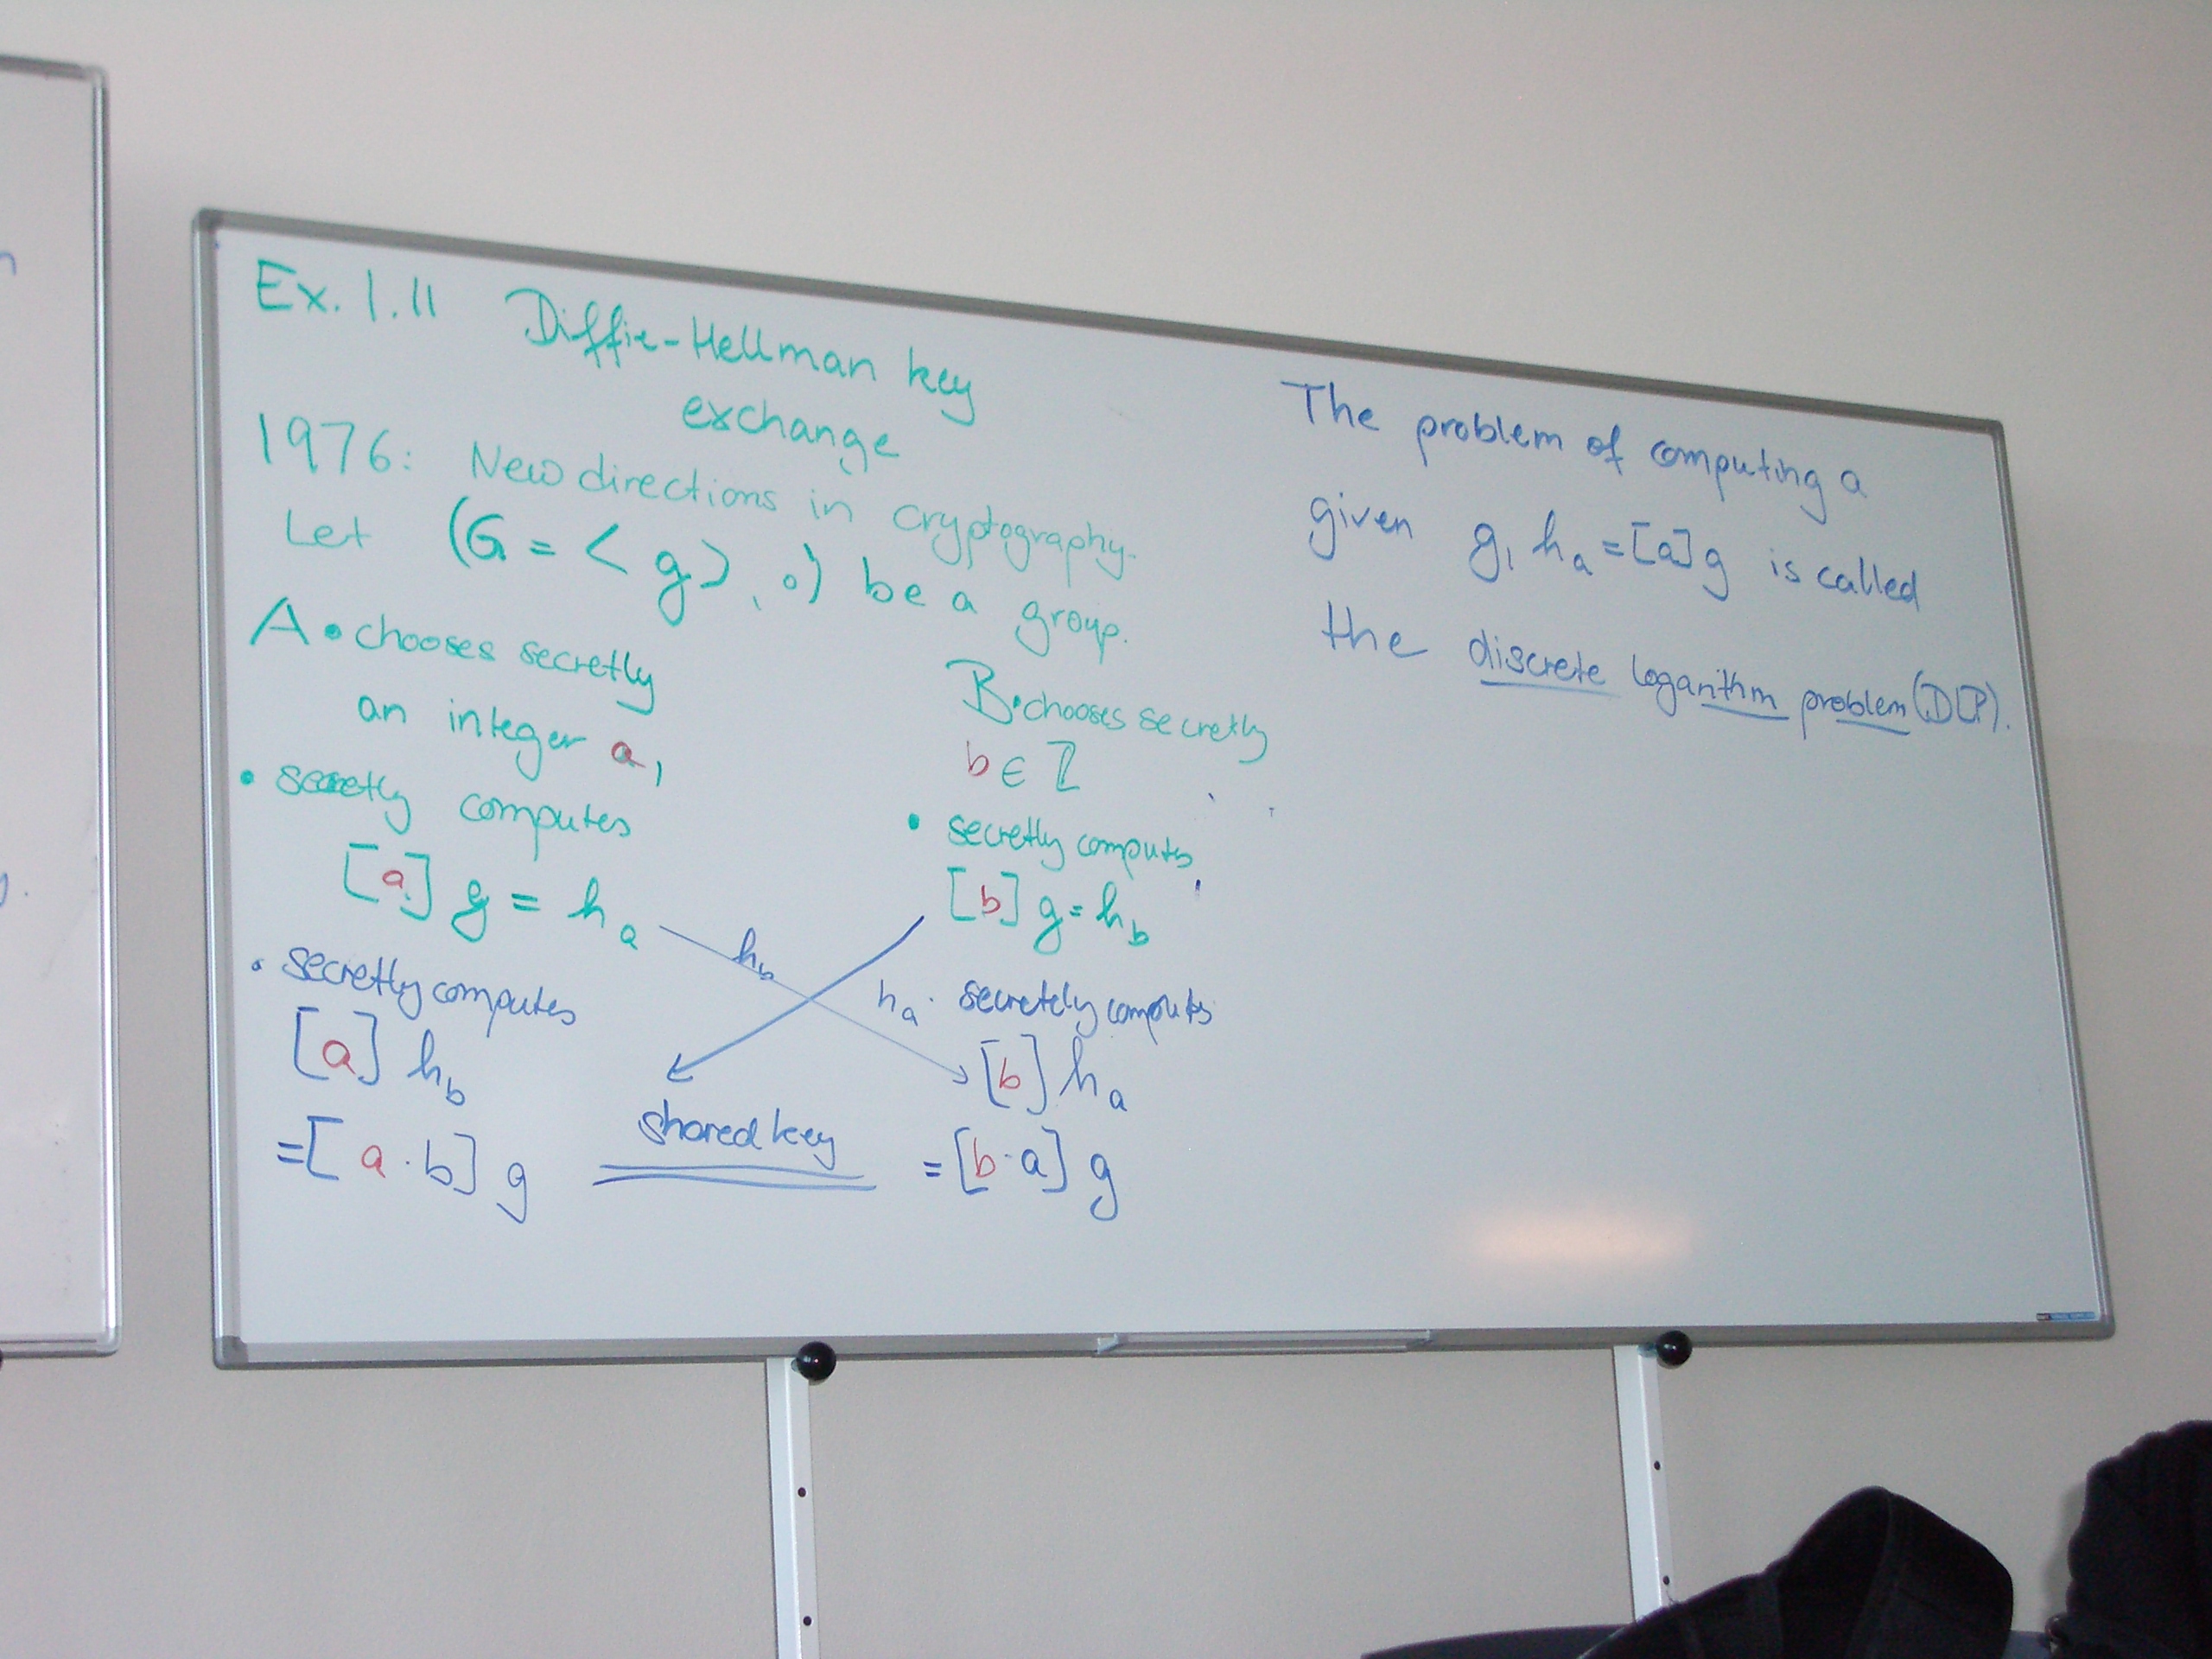 Ex. 1.11 Diffie-Hellman key
exchange
1976: New directions in cryptography.
Let (G = < g >, ∘) be a group.
A • chooses secretly
an integer a,
• secretly computes
[a] g = h_a
• secretly computes
[a] h_b
= [a · b] g
B • chooses secretly
b ∈ ℤ
• secretly computes
[b] g = h_b
h_b
h_a · secretely computes
[b] h_a
= [b · a] g
shared key
The problem of computing a
given g, h_a = [a] g is called
the discrete logarithm problem (DLP).